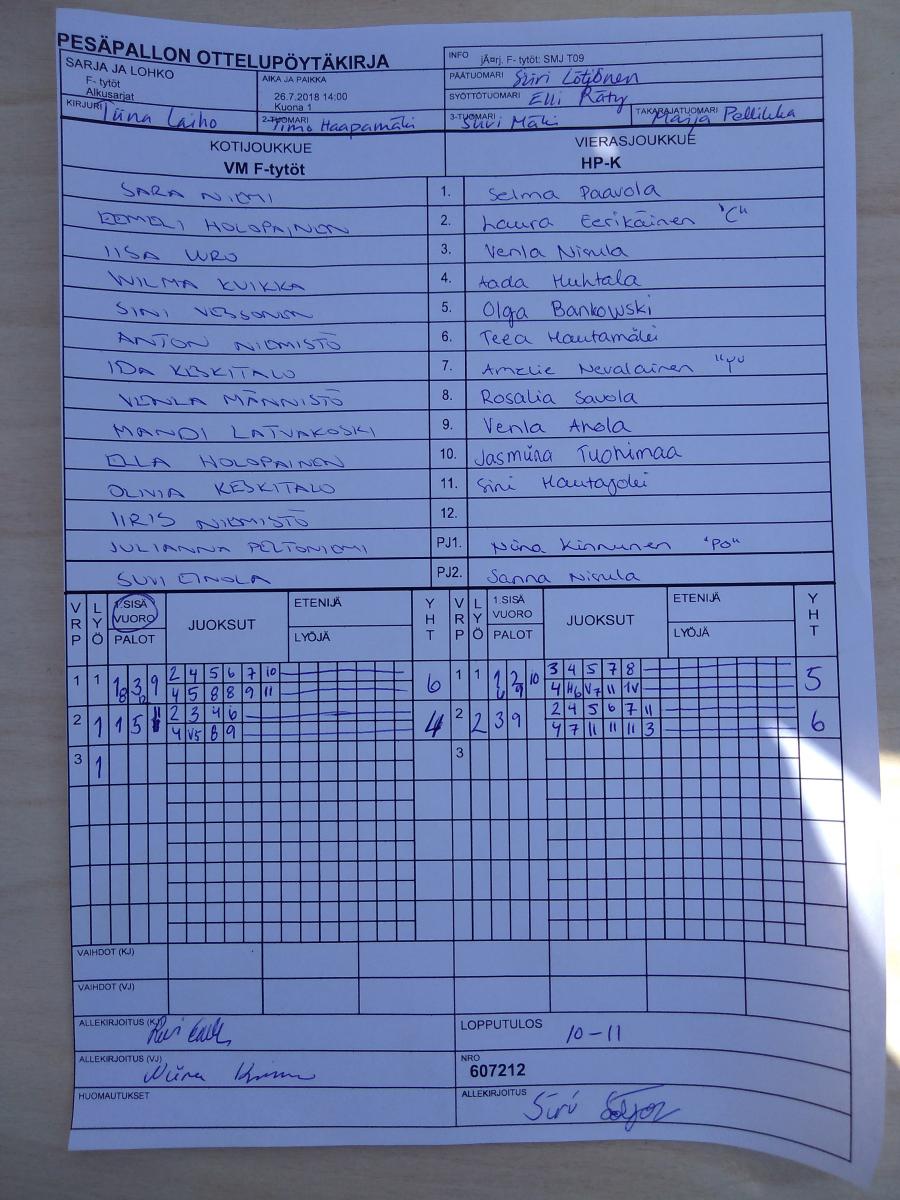 PESÄPALLON OTTELUPÖYTÄKIRJA
INFO jÃ¤rj. F- tytöt: SMJ T09
SARJA JA LOHKO
F- tytöt
Alkusarjat
AIKA JA PAIKKA
26.7.2018 14:00
Kuona 1
PÄÄTUOMARI Siiri Lötjönen
SYÖTTÖTUOMARI Elli Räty
KIRJURI Tiina Laiho
2-TUOMARI Timo Haapamäki
3-TUOMARI Suvi Mäki
TAKARAJATUOMARI Marja Pellikka
KOTIJOUKKUE VIERASJOUKKUE
VM F-tytöt HP-K
SARA NIEMI 1. Selma Paavola
EEMELI HOLOPAINEN 2. Laura Eerikäinen "C"
IISA URO 3. Venla Nisula
WILMA KUIKKA 4. Aada Huhtala
SINI VESSONEN 5. Olga Bankowski
ANTON NIEMISTÖ 6. Teea Hautamäki
IDA KESKITALO 7. Amelie Nevalainen
VENLA MÄNNISTÖ 8. Rosalia Savola
MANDI LATVAKOSKI 9. Venla Ahola
ELLA HOLOPAINEN 10. Jasmiina Tuohimaa
OLIVIA KESKITALO 11. Sini
IIRIS NIEMISTÖ 12.
JULIANNA PELTONIEMI PJ1. Niina Kinnunen "PO"
SUVI EINOLA PJ2. Sanna Nisula
VRP LYÖ 1.SISÄ VUORO PALOT JUOKSUT ETENIJÄ LYÖJÄ YHT VRP LYÖ 1.SISÄ VUORO PALOT JUOKSUT ETENIJÄ LYÖJÄ YHT
1 1 1 3 9 2 4 5 6 7 10 6 1 1 1 2 10 3 4 5 7 8 5
8 12 4 5 8 8 9 11 6 9 4 H6 V7 11 1V
2 1 1 5 11 2 3 4 6 4 2 2 3 9 2 4 5 6 7 11 6
4 V5 8 9 4 7 11 11 11 3
3 1 3
VAIHDOT (KJ)
VAIHDOT (VJ)
ALLEKIRJOITUS (KJ)
LOPPUTULOS 10-11
ALLEKIRJOITUS (VJ) Niina
NRO
607212
HUOMAUTUKSET
ALLEKIRJOITUS Siiri